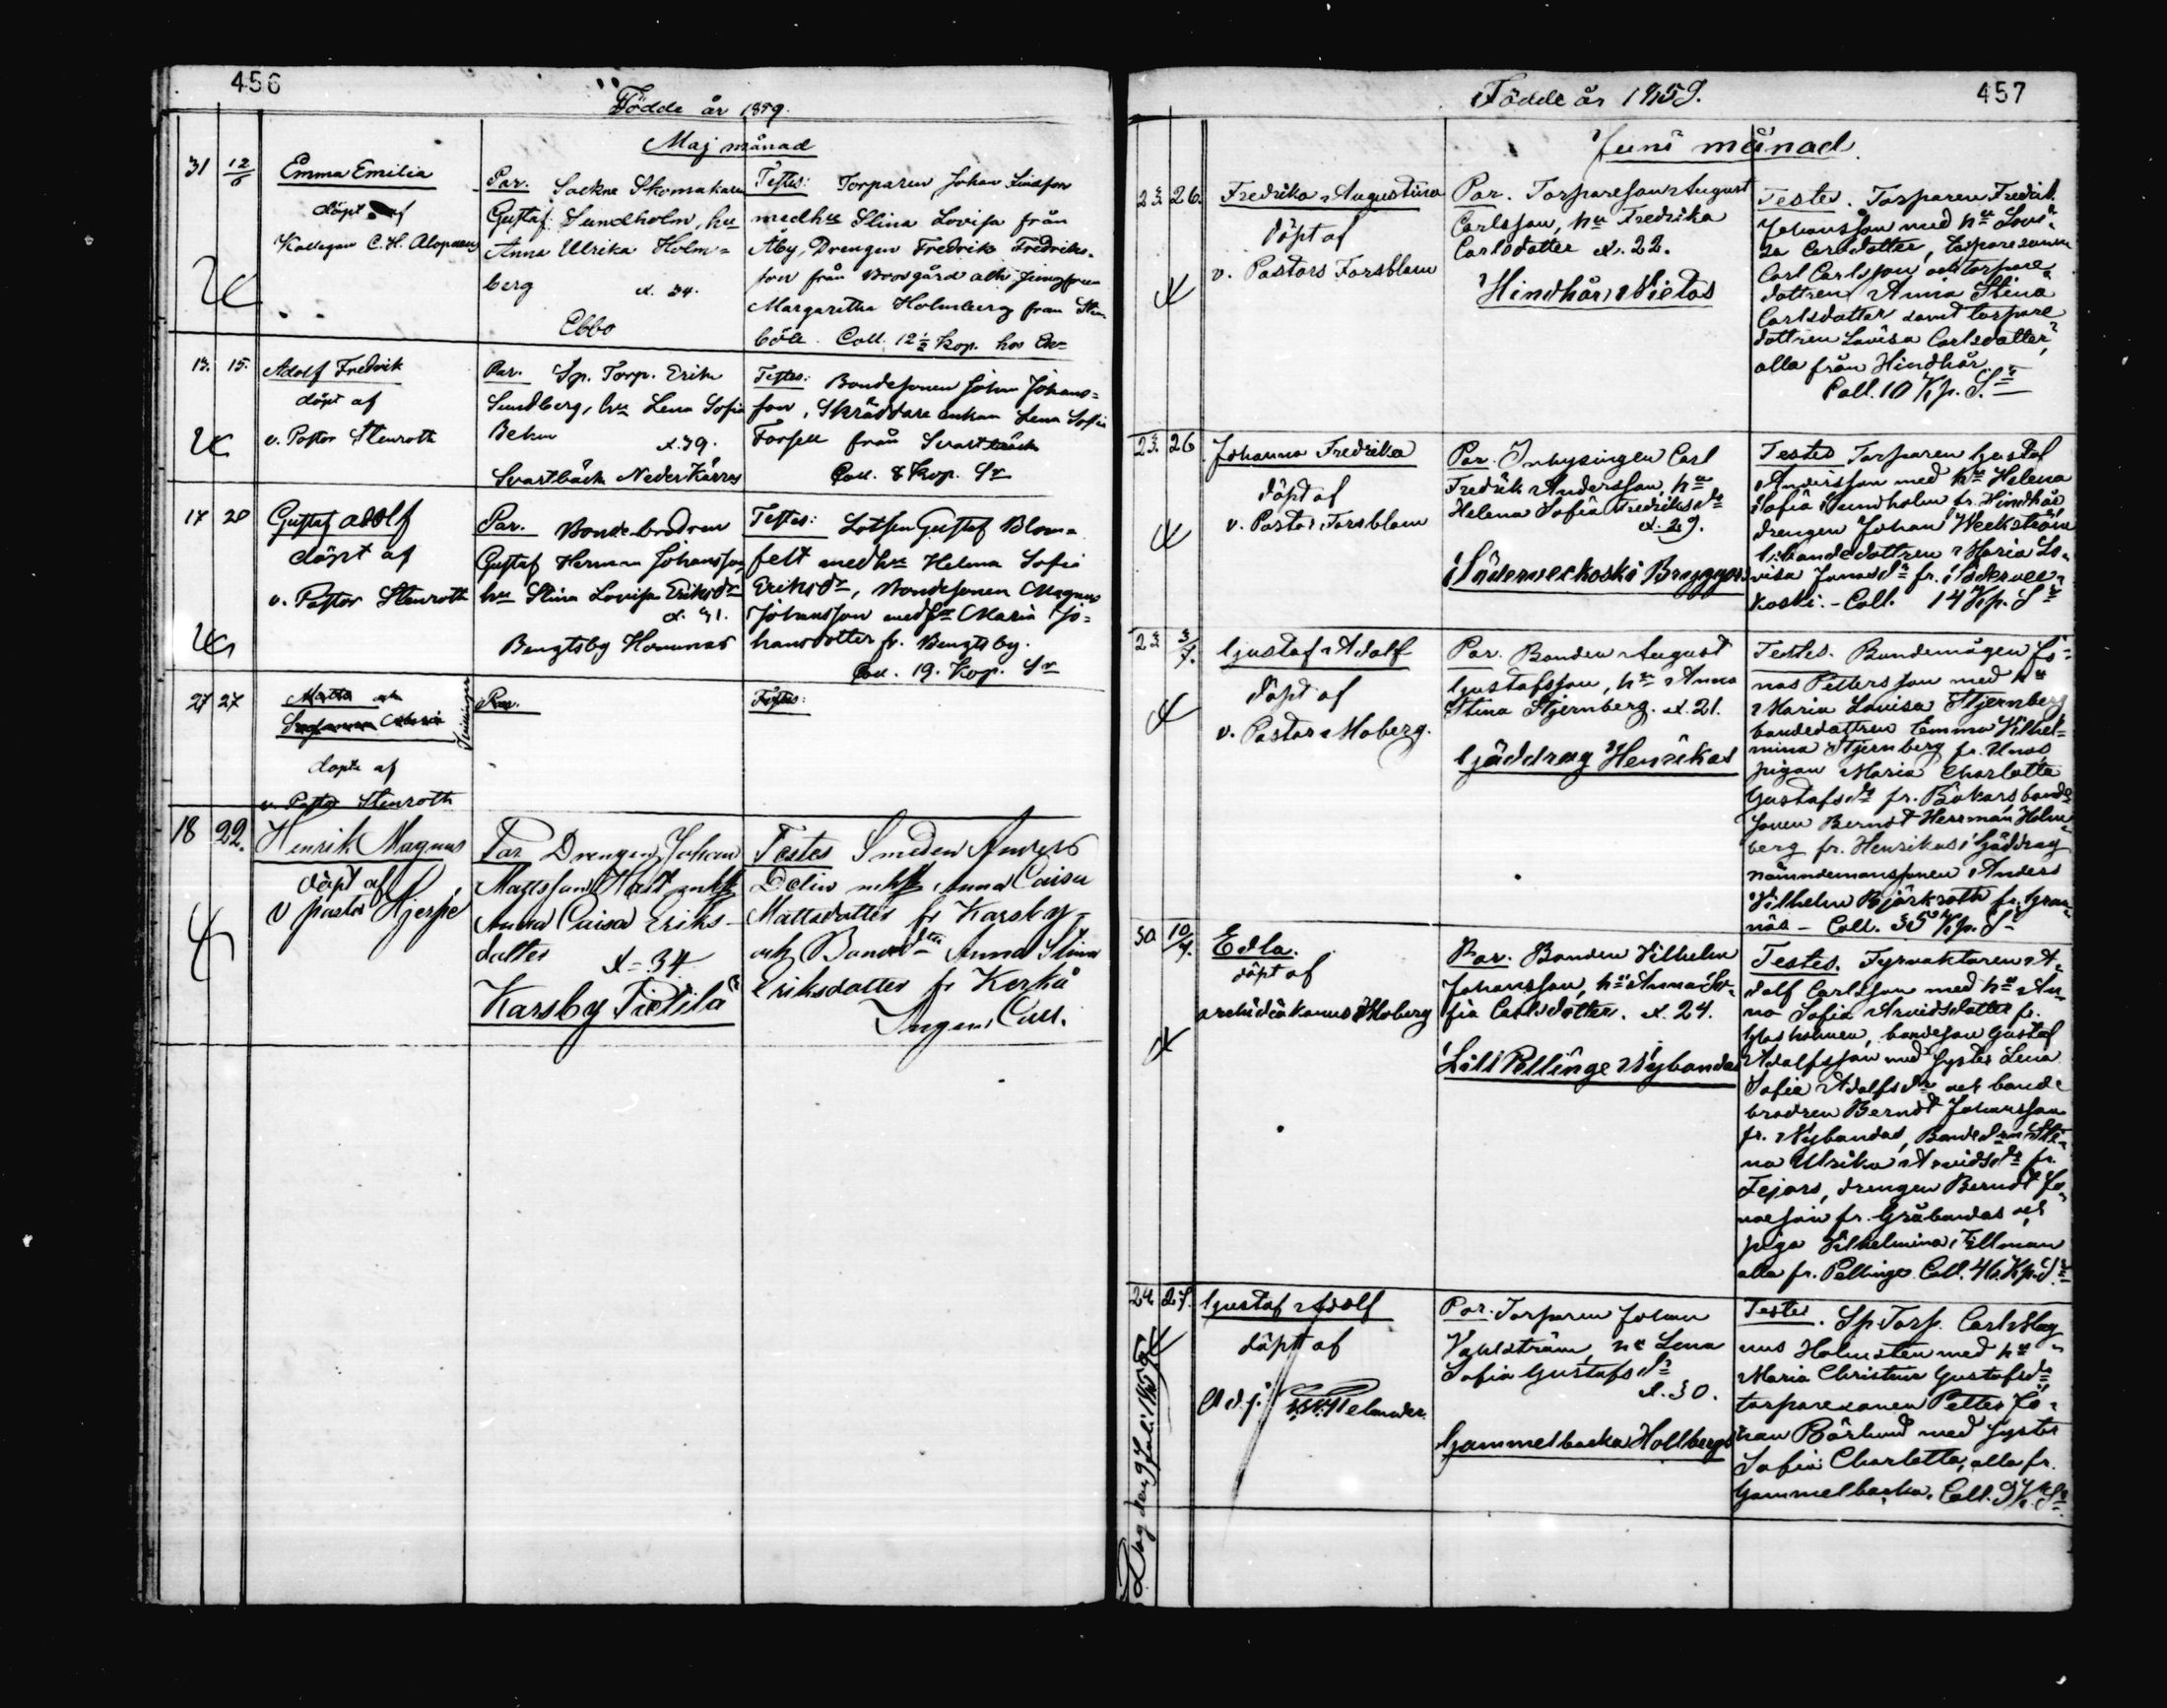 456
Födde år 1859.
Maj månad
31 12/6
Emma Emilia
döpt af
Kollegan C. H. Alopaeus
Par. Sockne Skomakaren
Gustaf Sundholm, hu
Anna Ulrika Holm=
berg æt. 34.
Ebbo
Testes: Torparen Johan Lindfors
med hu Stina Lovisa från
Åby, Drengen Fredrik Fredriks-
son från Borgård och Jungfrun
Margaretha Holmberg från Sten
böle. Coll. 12 ½ Kop. hos Enk
13. 15.
Adolf Fredrik
döpt af
v. Pastor Stenroth
Par. Sp. Torp. Erik
Sundberg, hu Lena Sofia
Behm æt. 39.
Svartbäck NederKärras
Testes: Bondesonen Johan Johans=
son, Skräddare enkan Lena Sofia
Forsell från Svartbäck
Coll. 8 Kop. Sr
17 20
Gustaf Adolf
döpt af
v. Pastor Stenroth
Par. Bondebrodren
Gustaf Herman Johansson,
hu Stina Lovisa Eriksdr
æt. 31.
Bengtsby Hommas
Testes: Lotsen Gustaf Blom=
felt med hu Helena Sofia
Eriksdr, Bondesonen Magnus
Johansson med hu Maria Jo=
hansdotter fr. Bengtsby.
Coll. 19. Kop. Sr
27 27
Tvillingar
döpte af
v. Pastor Stenroth
Par.
Testes:
18 22.
Henrik Magnus
döpt af
v pastor Hjerpe
Par Drengen Johan
Mattsson Hast
Anna Caisa Eriks-
dotter æt 34
Karsby Pietilä
Testes Smeden Anders
Delin Anna Caisa
Mattsdotter fr Karsby
och Anna Stina
Eriksdotter fr Kerko
Ingen Coll.
457
Födde år 1859.
Juni månad.
23. 26.
Fredrika Augustina
döpt af
v. Pastors Forsblom
Par. Torparesonen August
Carlsson, hu Fredrika
Carlsdotter æt. 22.
Hindhår, Mietas
Testes. Torparen Fredrik
Johansson med hu Lovi-
sa Carlsdotter, torparesonen
Carl Carlsson och torpare
dottren Anna Stina
Carlsdotter samt torpare
dottren Lovisa Carlsdotter,
alla från Hindhår
Coll. 10 Kp. Sr
23. 26
Johanna Fredrika
döpt af
v. Pastor Forsblom
Par. Inhysingen Carl
Fredrik Andersson, hu
Helena Sofia Fredriksdr
æt. 29.
Söderveckoski Bryggars
Testes Torparen Gustaf
Andersson med hu Helena
Sofia Sundholm fr. Hindhår
drengen Johan Weckström
bondedottren Maria Lo-
visa Jonasdr fr. Södervec-
koski. - Coll. 14 Kp. Sr
23 3/7.
Gustaf Adolf
döpt af
v. Pastor Moberg.
Par. Bonden August
Gustafsson, hu Anna
Stina Stjernberg. æt. 21.
Gäddrag Henrikas
Testes. Bondemågen Jo-
nas Pettersson med hu
Maria Lovisa Stjernberg
bondedottren Emma Vilhel-
mina Stjernberg fr. Unos
pigan Maria Charlotta
Gustafsdr fr. Bökars, bonde
sonen Berndt Herrman Holm-
berg fr. Henrikas i Gäddrag
nämndemansonen Anders
Vilhelm Björkroth fr. Gran-
näs - Coll. 35 Kp. Sr
30. 10/7.
Edla.
döpt af
archidiakonus Moberg
Par. Bonden Vilhelm
Johansson, hu Anna So-
fia Carlsdotter. æt. 24.
Lill Pellinge Nybondas
Testes. Fyrvaktaren A-
dolf Carlsson med hu An-
na Sofia Arvidsdotter fr.
Glosholmen, bondeson Gustaf
Adolfsson med syster Lena
Sofia Adolfsdr och bonde
brodren Berndt Johansson
fr. Nybondas, Sti-
na Ulrika Arvidsdr fr.
Tejars, drengen Berndt Jo-
nasson fr. Gråbondas och
piga Vilhelmina Tillman
alla fr. Pellinge Coll. 46. Kp. Sr
24. 27.
Gustaf Adolf
döpt af
Adj.
Par. Torparen Johan
Vahlström, hu Lena
Sofia Gustafsdr
æt. 30.
Gammelbacka Hollbergs
Testes. Sp Torp. Carl Mag
nus Holmsten med hu
Maria Christina Gustafsdr
torparesonen Petter Jo-
han Börlund med syster
Sofia Charlotta, alla fr.
Gammelbacka. Coll. 9 K. Sr.
Dog den 9 Juli 1859